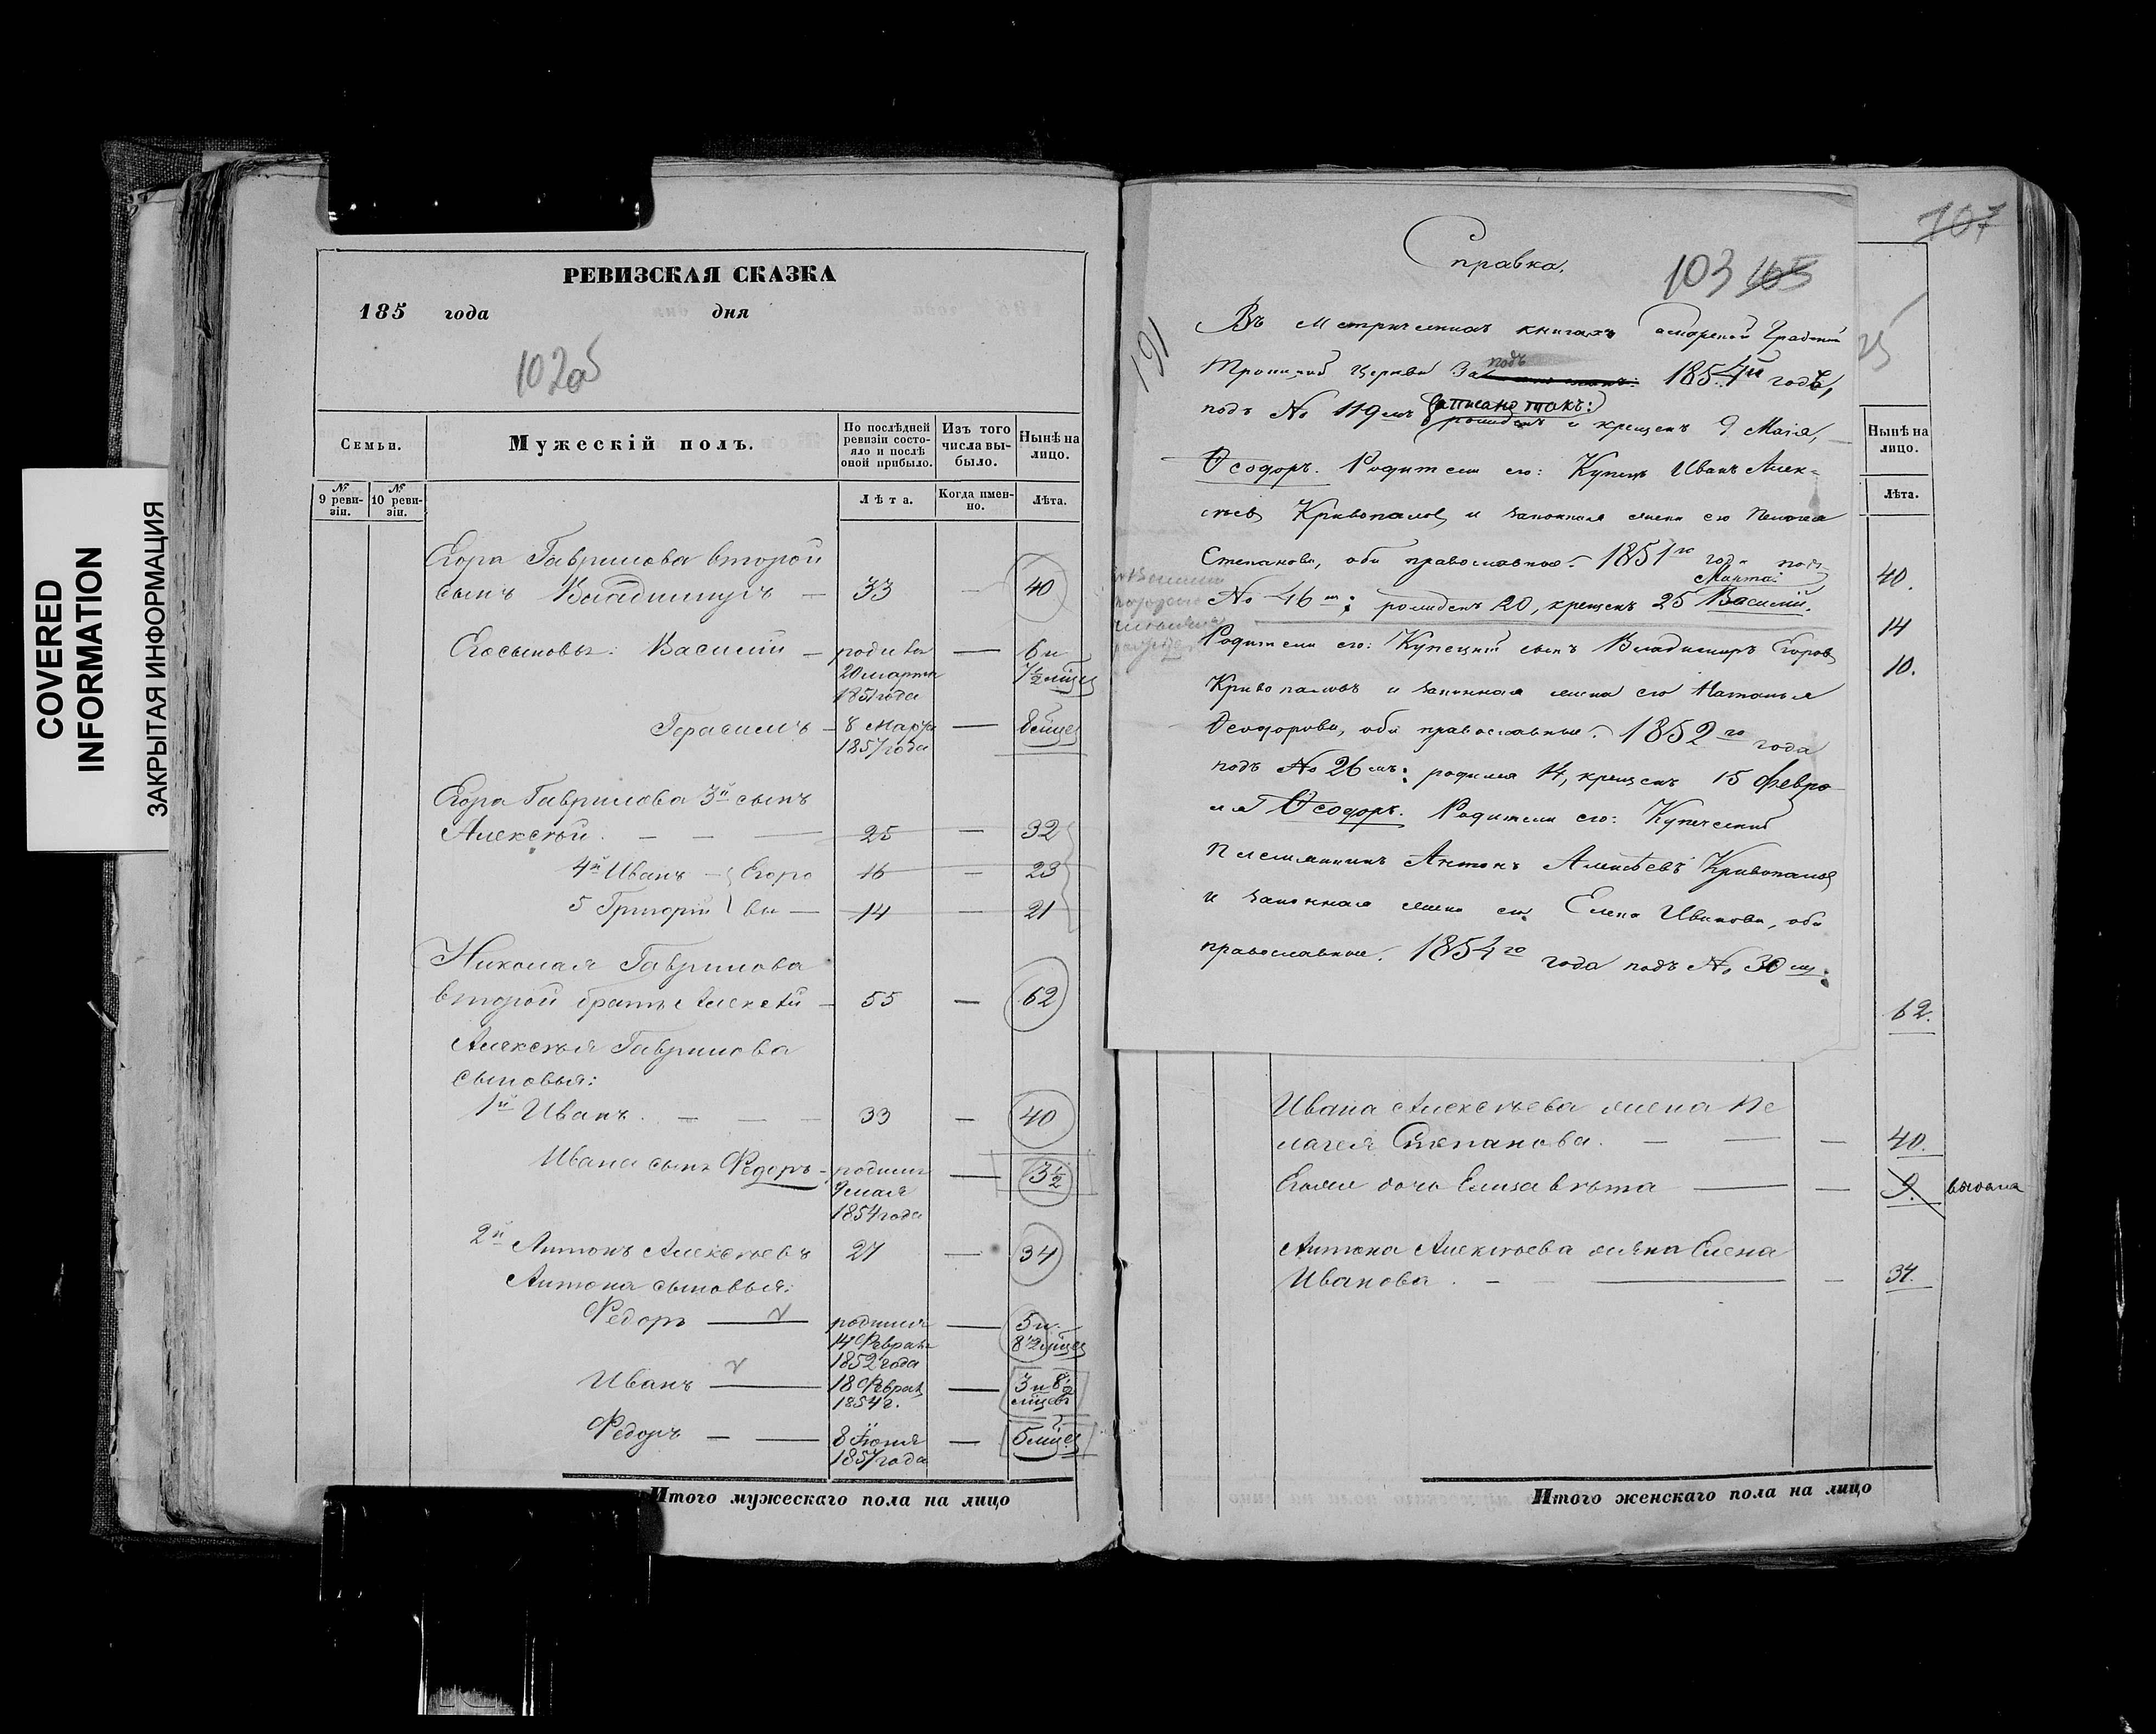 COVERED
INFORMATION
ЗАКРЫТАЯ ИНФОРМАЦИЯ
РЕВИЗСКАЯ СКАЗКА
185 года дня
102об
Семьи.
Мужескій полъ.
По послѣдней ревизіи состояло и послѣ оной прибыло.
Изъ того числа выбыло.
Нынѣ на лицо.
№ 9 ревизіи.
№ 10 ревизіи.
Лѣта.
Когда именно.
Лѣта.
Егора Гаврилова второй
сынъ Владимиръ — 33 — 40
Его сыновья: Василій — родился 20 марта 1851 года — 6 и 7½ мѣсец
Герасимъ — 8 марта 1857 года — 8 мѣсец
Егора Гаврилова 3й сынъ
Алексѣй — — — 25 — 32
4й Иванъ — Егоро 16 — 23
5 Григорій вы — 14 — 21
Николая Гаврилова
второй братъ Алексѣй — 55 — 62
Алексѣя Гаврилова
сыновья:
1й Иванъ — — — 33 — 40
Ивана сынъ Федоръ — родился 9 мая 1854 года — 3½
2й Антонъ Алексѣевъ 27 — 34
Антона сыновья:
Федоръ — родился 14 Февраля 1852 года — 5 и 8½ мѣсец
Иванъ — 18 Феврал 1854 г. — 3 и 8½ мѣсец
Федоръ — — 8 Іюня 1857 года — 5 мѣсец
Итого мужескаго пола на лицо
107
Справка.
103 105
191
Въ Метрическихъ книгахъ Градской
Троицкой Церкви За подъ 1854й годъ,
подъ № 119мъ записано такъ: рожденъ и крещенъ 9 Мая,
Ѳеодоръ. Родители его: Купецъ Иванъ Алек-
сѣевъ Кривопаловъ и законная жена его Пелагея
Степанова, оба православные. 1851го года подъ
№ 46мъ: рожденъ 20, крещенъ 25 Марта: Василій.
Родители его: Купеческій сынъ Владимиръ Егоровъ
Кривопаловъ и законная жена его Наталья
Ѳеодорова, оба православные. 1852го года
подъ № 26мъ: родился 14, крещенъ 15 Февра-
ля Ѳеодоръ. Родители его: Купеческій
племянникъ Антонъ Алексѣевъ Кривопаловъ
и законная жена его Елена Иванова, оба
православные. 1854го года подъ № 30мъ:
Нынѣ на лицо.
Лѣта.
40.
14
10.
62.
Ивана Алексѣева жена Пе
лагея Степанова. — — — 40.
Ихъ дочь Елизавѣта — — 9. выдана
Антона Алексѣева жена Елена
Иванова. — — — 34.
Итого женскаго пола на лицо